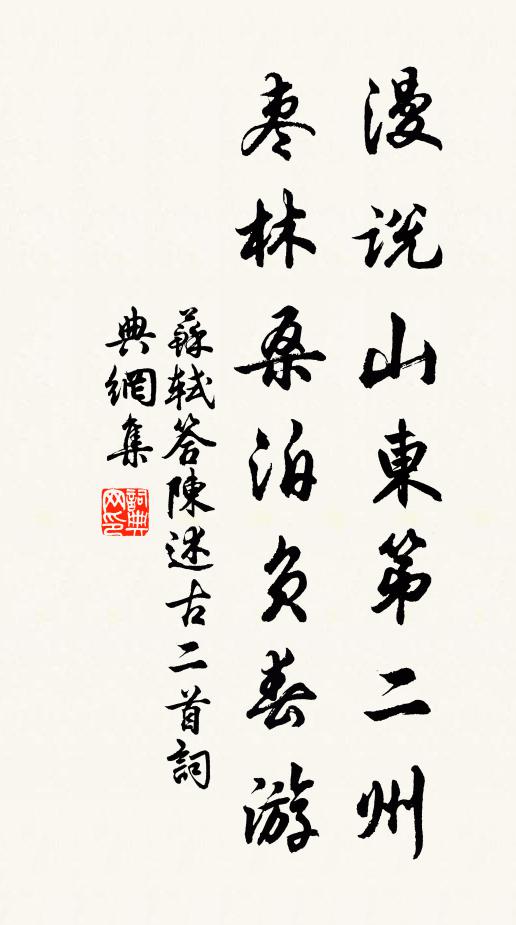 漫说山東第二州
枣林桑泊负春游
蘇軾答陳述古二首詞
典網集
詞典
网印